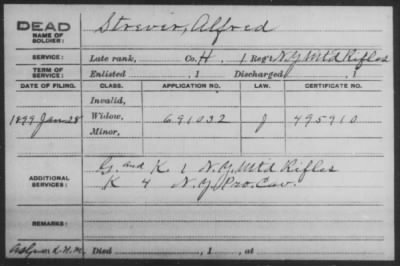 DEAD
NAME OF SOLDIER: Strever, Alfred
SERVICE: Late rank, Co. H. 1 Reg't N.Y. Mtd Rifles
TERM OF SERVICE: Enlisted , 1 Discharged , 1
DATE OF FILING. CLASS. APPLICATION NO. LAW. CERTIFICATE NO.
Invalid,
1899 Jan 28 Widow, 691032 J 495910
Minor,
ADDITIONAL SERVICES: G. and K. 1 N.Y. Mtd Rifles
K 4 N.Y. Pro. Cav.
REMARKS:
Died , 1 , at